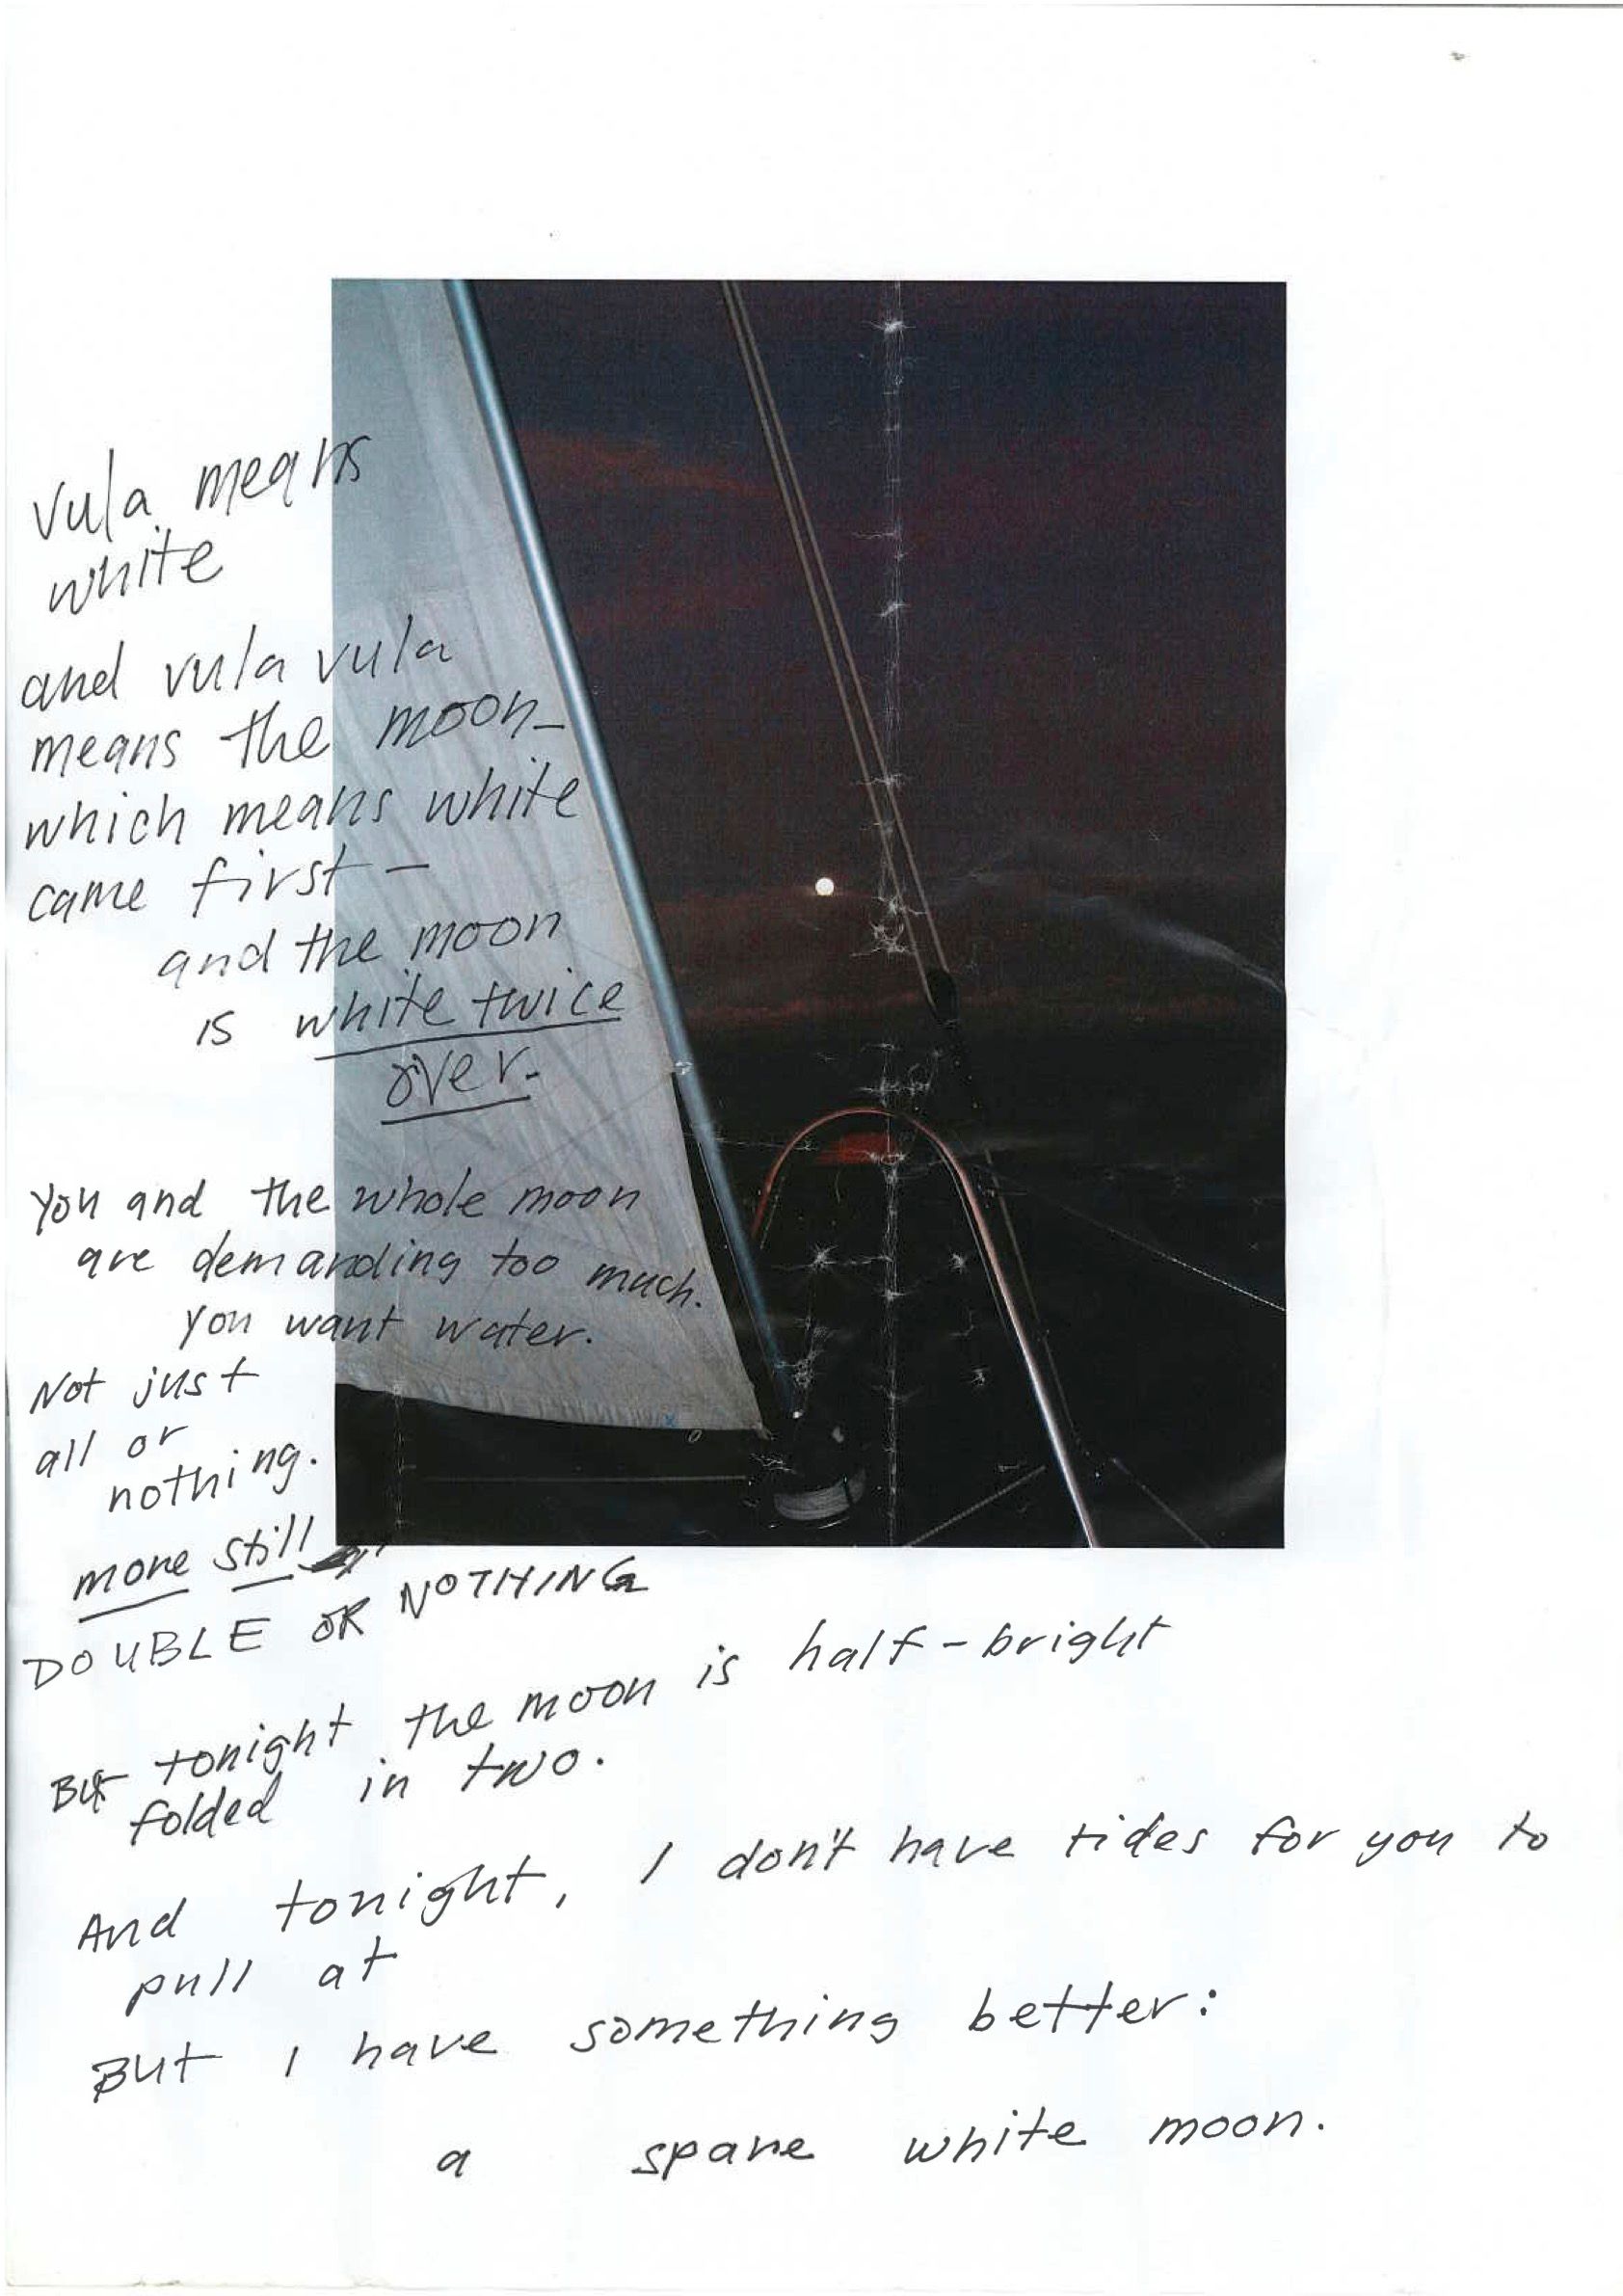 vula means
white
and vula vula
means the moon-
which means white
came first —
and the moon
is white twice
over.
You and the whole moon
are demanding too much.
You want water.
Not just
all or
nothing.
more still
DOUBLE OR NOTHING
But tonight the moon is half-bright
folded in two.
And tonight, I don't have tides for you to
pull at
But I have something better:
a spare white moon.